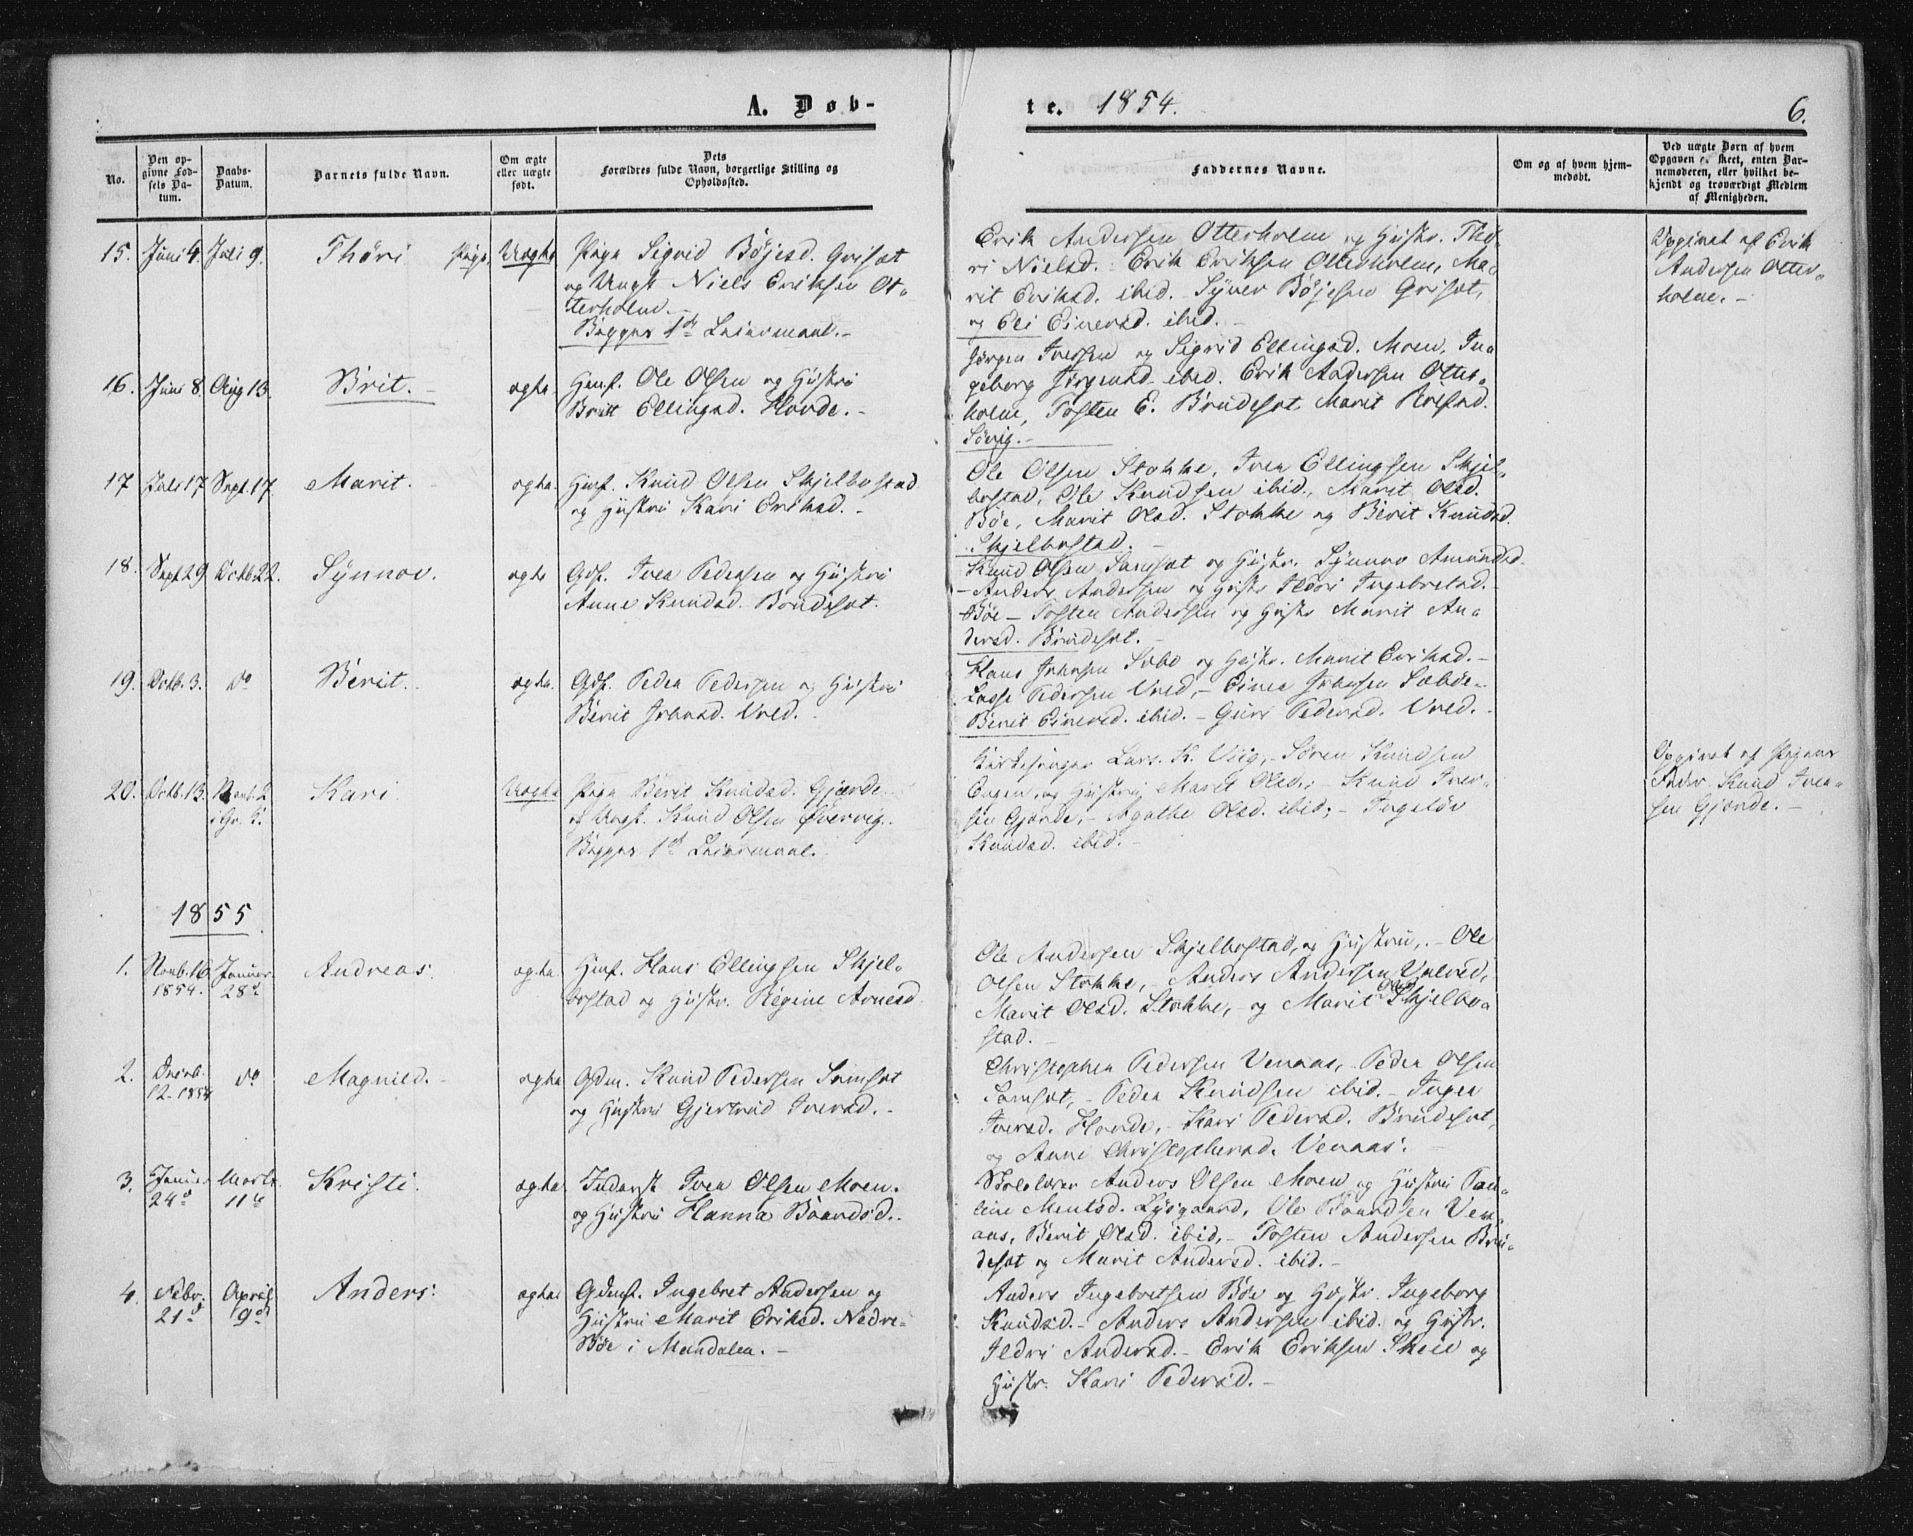 A. Døb-
te. 1854.
6.
No.
Den op-
givne Fød-
sels Da-
tum.
Daabs-
Datum.
Barnets fulde Navn.
Om ægte
eller uægte
født.
Dets
Forældres fulde Navn, borgerlige Stilling og
Opholdssted.
Faddernes Navne.
Om og af hvem hjem-
medøbt.
Ved uægte Børn af hvem
Opgaven er skeet, enten Bar-
nemoderen, eller hvilket be-
kjendt og troværdigt Medlem
af Menigheden.
15. Juni 4. Juli 9. Thøri Pige. Uægte Pige Sigrid Bøjesd. Griset
og Ungk Niels Eriksen Ot-
terholm.
Begges 1ste Leiermaal.-
Erik Andersen Otterholm og Hustr. Thø-
ri Nielsd. Erik Eriksen Otterholm, Ma-
rit Eriksd. ibid. Syver Bøjesen Griset,
og Eli Einersd. ibid.
Opgivet af Erik
Andersen Otter-
holm.-
16. Juni 8. Aug 13. Brit.- ægte. Huusf. Ole Olsen og Hustru
Britt Ellingsd. Hovde.-
Jørgen Iversen og Sigrid Ellingsd. Moen, In-
geborg Jørgensd. ibid. Erik Andersen Otter-
holm, Tosten E. Brudeset Marit
17 Juli 17 Sept. 17 Marit. ægte. Huusf. Knud Olsen Skjelbostad
og Hustru Kari Eriksd.-
Ole Olsen Stokke, Iver Ellingsen Skjel-
bostad, Ole Knudsen ibid., Marit Olsd.
Bøe, Marit Olsd. Stokke og Berit Knudsd.
Skjelbostad.-
18. Sept 29. Octb. 22. Synnøv. ægte Gdf. Iver Pedersen og Hustru
Anne Knudsd. Brudeset.
Knud Olsen Samset og Hustr. Synnøv Amundsd.
- Anders Andersen og Hustr Ildri Ingebretsd.
Bøe - Tosten Andersen og Hustr Marit An-
dersd. Brudeset.-
19. Octb. 3. do Berit. ægte. Gdf. Peder Pedersen og Hustru
Berit Johnsd. Vred.
Hans Johnsen Sæbø og Hustr. Marit Eriksd.-
Lasse Pedersen Vred,- Einer Johnsen Sæbøe-
Berit Einersd. ibid.- Guri Pedersd. Vred.
20. Octb. 13. Novb. 2 Kari Uægte Pige Berit Knudsd. Gjærde
og Ungk. Knud Olsen Øvervig.
Begges 1st Leiermaal.
Kirkesanger Lars K. Viig,- Søren Knudsen
Engen, og Hustru Marit Olsd.;- Knud Iver-
sen Gjerde,- Agathe Olsd. ibid;- Ingeløv
Knudsd. ibid.-
Opgivet af Pigens
Fader Knud Iver-
sen Gjerde.-
1855
1. Novb. 16 1854. Januar 28de Andreas. ægte. Huusf. Hans Ellingsen Skjel-
bostad og Hustr. Regine Arnesd
Ole Andersen Skjelbostad, og Hustru,.- Ole
Olsen Stokke,- Anders Andersen
Marit Olsd. Stokke,- og Marit Olsd Skjelbo-
stad.
2. Decb. 12-1854 do Magnild. ægte Gdm. Knud Pedersen Samset
og Hustru Gjertrud Iversd.-
Christopher Pedersen Venaas,- Peder Olsen
Samset,- Peder Knudsen ibid.- Inger
Iversd. Hovde,- Kari Pedersd. Brudeset,
og Anne Christophersd. Venaas.
3. Januar 24de Marts 11te Kristi. ægte. Inderst Iver Olsen Moen.
og Hustru Hanna Baardsd.
Skolelærer Anders Olsen Moen og Hustru Pau-
line Mentsd. Lysgaard, Ole Baardsen Ven-
aas, Berit Olsd. ibid,- Tosten Andersen Bru-
deset og Marit Andersd. ibid.-
4. Febr. 21de April 9de Anders. ægte. Gdmf. Ingebret Andersen og
Hustru Marit Eriksd. Nedre-
Bøe i Mandalen.-
Anders Ingebretsen Bøe og Hustr. Ingeborg
Knudsd.- Anders Andersen ibid. og Hustr.
Ildri Andersd.- Erik Eriksen Skeie og
Hustr. Kari Pedersd.-